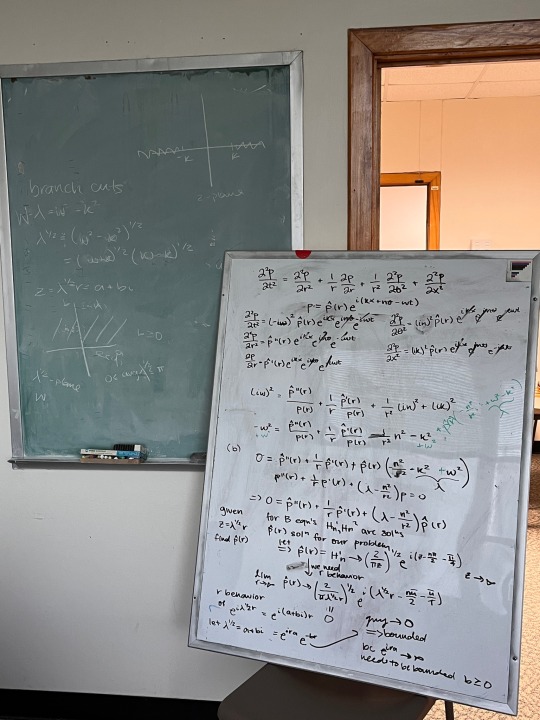 -k
k
z-plane
branch cuts
W=λ=w²-k²
λ^{1/2} = (w²-k²)^{1/2}
(w-k)^{1/2}
z = λ^{1/2}r = a+bi
b≥0
∂²p/∂t² = ∂²p/∂r² + 1/r ∂p/∂r + 1/r² ∂²p/∂θ² + ∂²p/∂x²
p = p̂(r)e^{i(kx+nθ-wt)}
∂²p/∂t² = (-iw)² p̂(r)e^{ikx}e^{inθ}e^{-iwt}
∂²p/∂θ² = (in)² p̂(r) e^{ikx} e^{inθ} e^{-iwt}
∂²p/∂r² = p̂''(r) e^{ikx} e^{inθ} e^{-iwt}
∂²p/∂x² = (ik)² p̂(r) e^{ikx} e^{inθ} e^{-iwt}
∂p/∂r = p̂'(r) e^{ikx} e^{inθ} e^{-iwt}
(iw)² = p̂''(r)/p̂(r) + 1/r p̂'(r)/p̂(r) + 1/r² (in)² + (ik)²
-w² = p̂''(r)/p̂(r) + 1/r p̂'(r)/p̂(r) - 1/r² n² - k²
+w²
+w²
λ
(b)
0 = p̂''(r) + 1/r p̂'(r) + p̂(r) (-n²/r² - k² + w²)
λ
p''(r) + 1/r p'(r) + (λ - n²/r²) p = 0
⇒ 0 = p̂''(r) + 1/r p̂'(r) + (λ - n²/r²) p̂(r)
given
z = λ^{1/2}r
find p̂(r)
for B eqn's H¹n, H²n are sol's
p̂(r) sol'n for our problem
let
⇒ p̂(r) = H¹n → (2/πz)^{1/2} e^{i(z - nπ/2 - π/4)}
z → ∞
we need
r behavior
lim r→∞ p̂(r) → (2/πλ^{1/2}r)^{1/2} e^{i(λ^{1/2}r - nπ/2 - π/4)}
0
r behavior
of e^{iλ^{1/2}r} = e^{i(a+bi)r}
let λ^{1/2} = a+bi = e^{ira} e^{-br}
→ 0
⇒ bounded
bc e^{ira} → ∞
needs to be bounded b ≥ 0